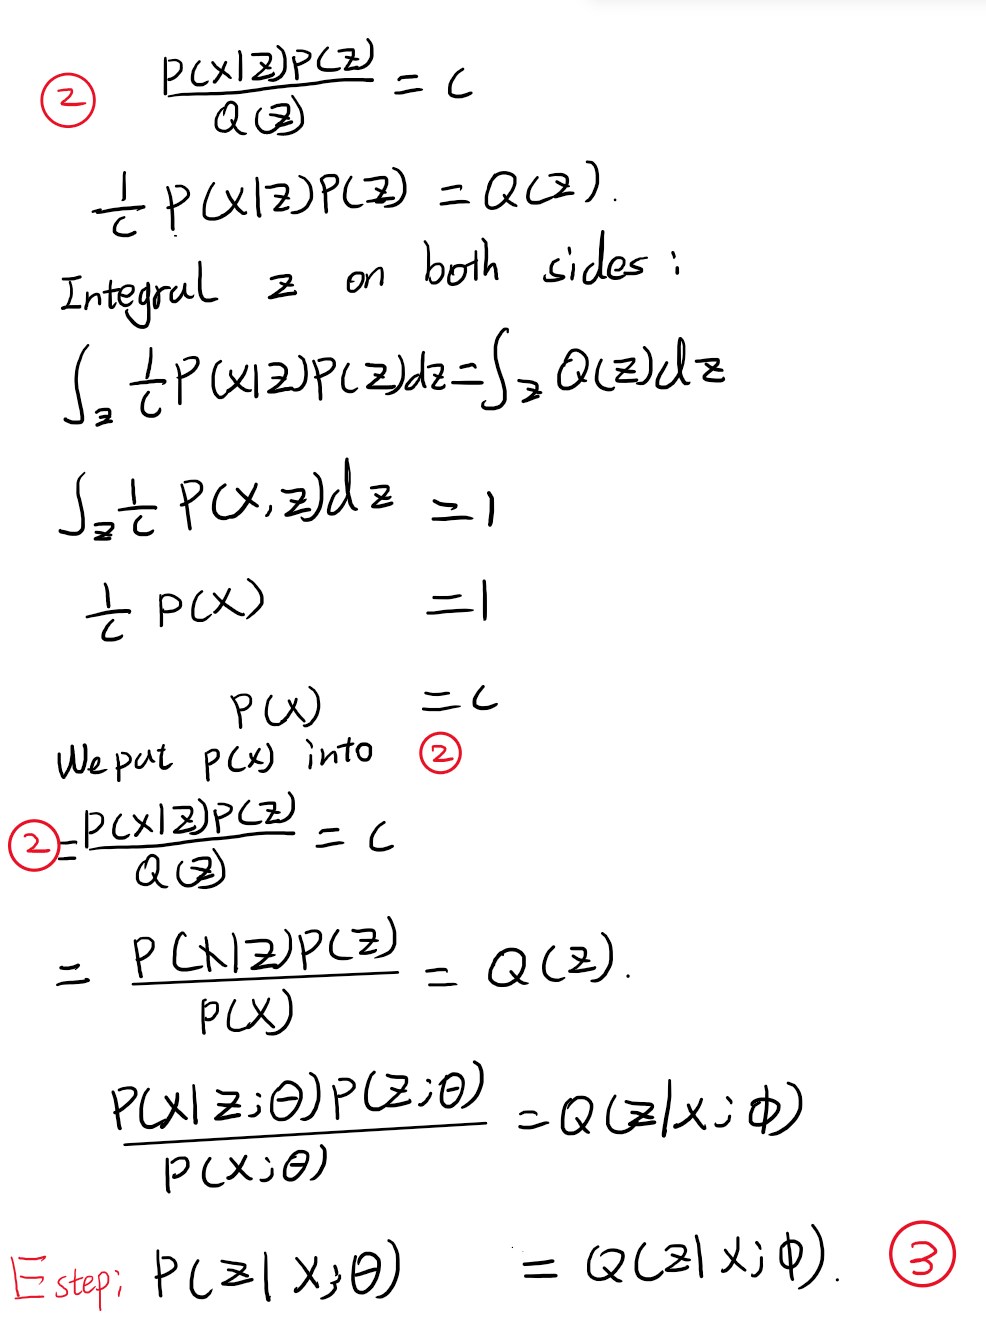 ② P(X|Z)P(Z) / Q(Z) = C
1/C P(X|Z)P(Z) = Q(Z).
Integral z on both sides:
∫_z 1/C P(X|Z)P(Z)dz = ∫_z Q(Z)dz
∫_z 1/C P(X,Z)dz = 1
1/C P(X) = 1
P(X) = C
We put P(X) into ②
② = P(X|Z)P(Z) / Q(Z) = C
= P(X|Z)P(Z) / P(X) = Q(Z).
P(X|Z;θ)P(Z;θ) / P(X;θ) = Q(Z|X;φ)
E step; P(Z|X;θ) = Q(Z|X;φ). ③